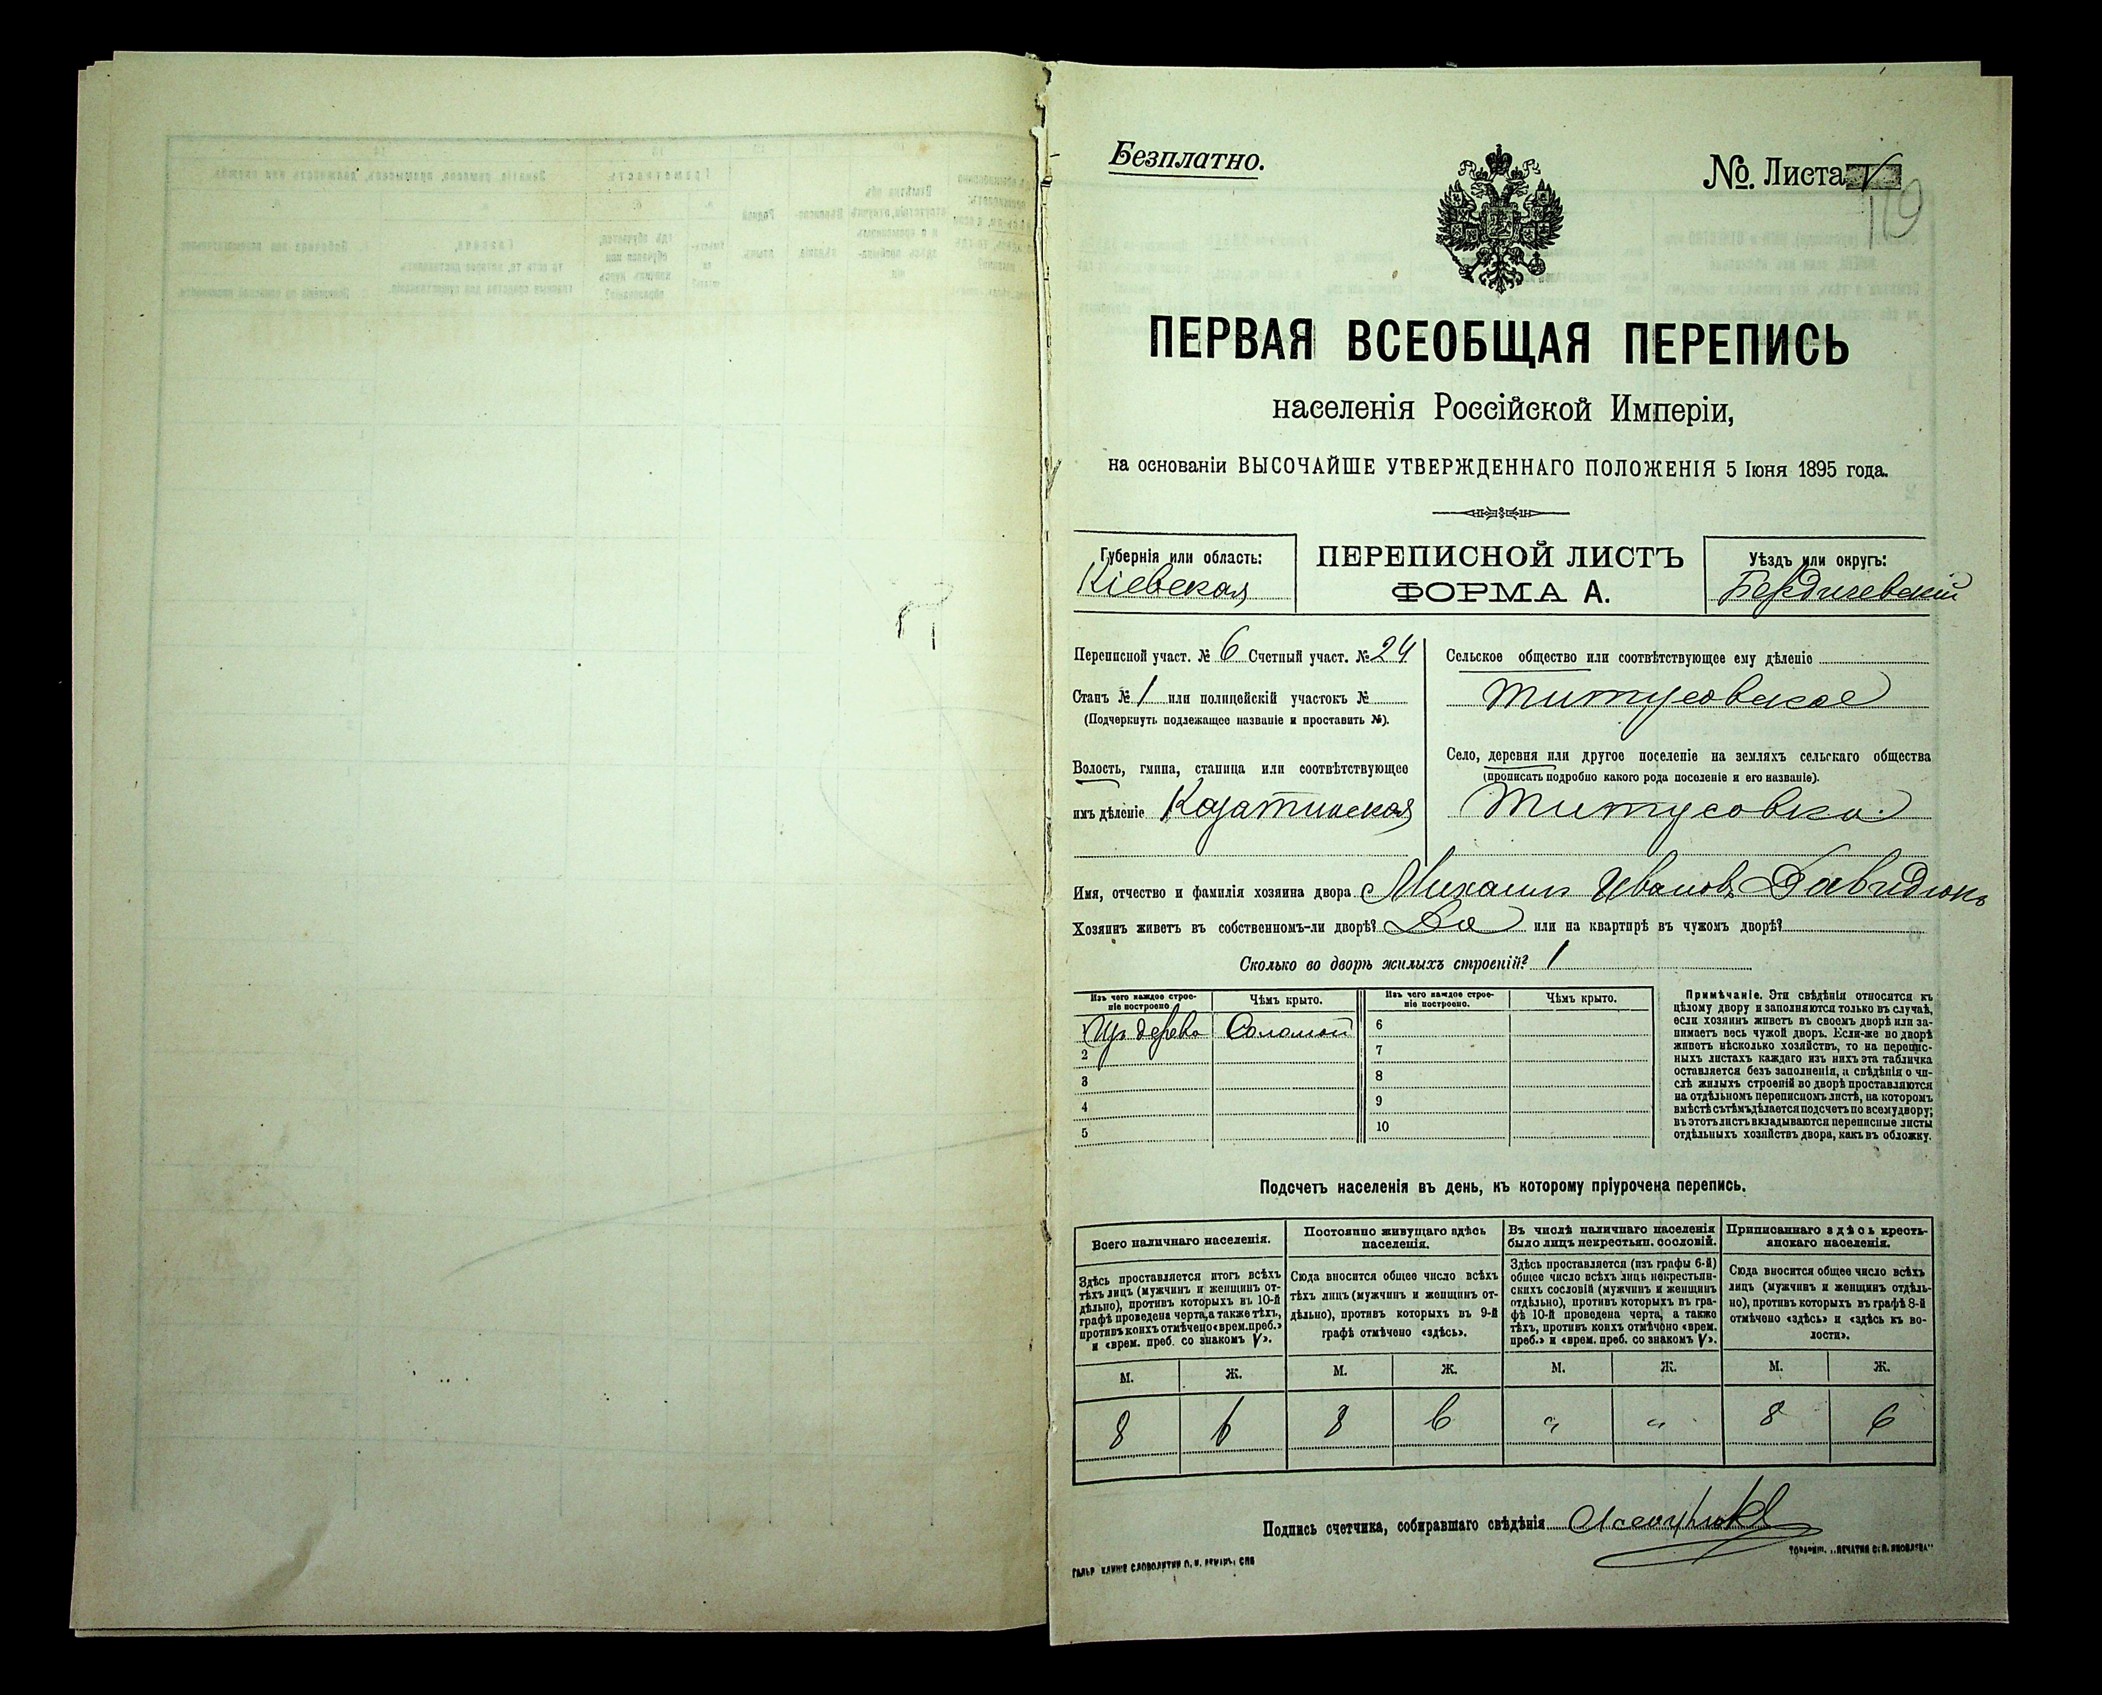 Безплатно.
№. Листа
119
ПЕРВАЯ ВСЕОБЩАЯ ПЕРЕПИСЬ
населенія Россійской Имперіи,
на основаніи ВЫСОЧАЙШЕ УТВЕРЖДЕННАГО ПОЛОЖЕНІЯ 5 Іюня 1895 года.
Губернія или область:
Кіевская
ПЕРЕПИСНОЙ ЛИСТЪ
ФОРМА А.
Уѣздъ или округъ:
Бердичевскій
Переписной участ. № 6 Счетный участ. № 24
Станъ № 1 или полицейскій участокъ №
(Подчеркнуть подлежащее названіе и проставить №).
Волость, гмина, станица или соотвѣтствующее
имъ дѣленіе Козатинская
Сельское общество или соотвѣтствующее ему дѣленіе
Титусовское
Село, деревня или другое поселеніе на земляхъ сельскаго общества
(прописать подробно какого рода поселеніе и его названіе).
Титусовка.
Имя, отчество и фамилія хозяина двора Михаилъ Ивановъ Давидюкъ
Хозяинъ живетъ въ собственномъ-ли дворѣ? Да или на квартирѣ въ чужомъ дворѣ?
Сколько во дворѣ жилыхъ строеній? 1
Изъ чего каждое строе-
ніе построено
Чѣмъ крыто.
Изъ чего каждое строе-
ніе построено.
Чѣмъ крыто.
Изъ дерева Соломой 6
2 7
3 8
4 9
5 10
Примѣчаніе. Эти свѣдѣнія относятся къ
цѣлому двору и заполняются только въ случаѣ,
если хозяинъ живетъ въ своемъ дворѣ или за-
нимаетъ весь чужой дворъ. Если-же во дворѣ
живетъ нѣсколько хозяйствъ, то на перепис-
ныхъ листахъ каждаго изъ нихъ эта табличка
оставляется безъ заполненія, а свѣдѣнія о чи-
слѣ жилыхъ строеній во дворѣ проставляются
на отдѣльномъ переписномъ листѣ, на которомъ
вмѣстѣ съ тѣмъ дѣлается подсчетъ по всему двору;
въ этотъ листъ вкладываются переписные листы
отдѣльныхъ хозяйствъ двора, какъ въ обложку.
Подсчетъ населенія въ день, къ которому пріурочена перепись.
Всего наличнаго населенія.
Здѣсь проставляется итогъ всѣхъ
тѣхъ лицъ (мужчинъ и женщинъ от-
дѣльно), противъ которыхъ въ 10-й
графѣ проведена черта, а также тѣхъ,
противъ коихъ отмѣчено «врем. преб.»
и «врем. преб. со знакомъ V».
Постоянно живущаго здѣсь
населенія.
Сюда вносится общее число всѣхъ
тѣхъ лицъ (мужчинъ и женщинъ от-
дѣльно), противъ которыхъ въ 9-й
графѣ отмѣчено «здѣсь».
Въ числѣ наличнаго населенія
было лицъ некрестьян. сословій.
Здѣсь проставляется (изъ графы 6-й)
общее число всѣхъ лицъ некрестьян-
скихъ сословій (мужчинъ и женщинъ
отдѣльно), противъ которыхъ въ гра-
фѣ 10-й проведена черта, а также
тѣхъ, противъ коихъ отмѣчено «врем.
преб.» и «врем. преб. со знакомъ V».
Приписаннаго здѣсь кресть-
янскаго населенія.
Сюда вносится общее число всѣхъ
лицъ (мужчинъ и женщинъ отдѣль-
но), противъ которыхъ въ графѣ 8-й
отмѣчено «здѣсь» и «здѣсь въ во-
лости».
М. Ж. М. Ж. М. Ж. М. Ж.
8 6 8 6 " " 8 6
Подпись счетчика, собиравшаго свѣдѣнія